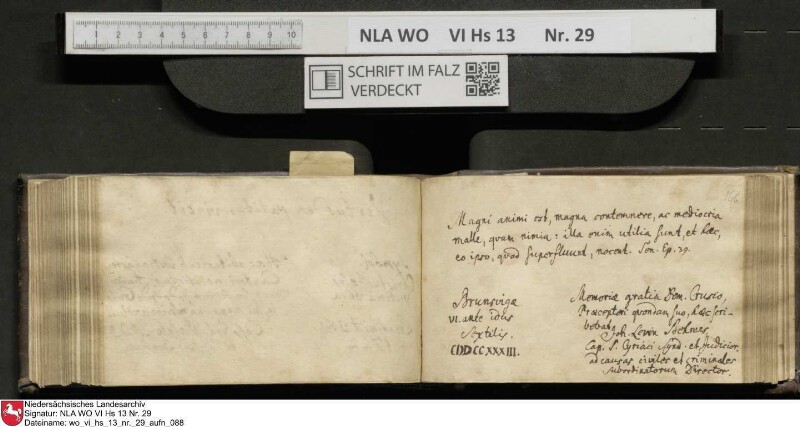 NLA WO VI Hs 13 Nr. 29
1 2 3 4 5 6 7 8 9 10
SCHRIFT IM FALZ
VERDECKT
Magni animi est, magna contemnere, ac mediocria
malle, quam nimia: illa enim utilia sunt, et hæc,
eo ipso, quod superfluunt, nocent. Sen. Ep. 39.
Brunsvigæ
VI. ante idus
Sextilis.
CIↃIↃCCXXXIII.
Memoriæ gratia Dom. Crusio,
Præceptori quondam suo, hæc scri-
bebat
Joh. Levin
Cap. S. Cyriaci Synd. et Judicior.
ad causas civiles et criminales
subordinatorum Director.
Niedersächsisches Landesarchiv
Signatur: NLA WO VI Hs 13 Nr. 29
Dateiname: wo_vi_hs_13_nr._29_aufn_088